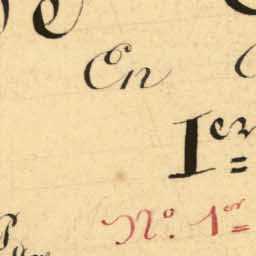 En
Ier
No. 1er